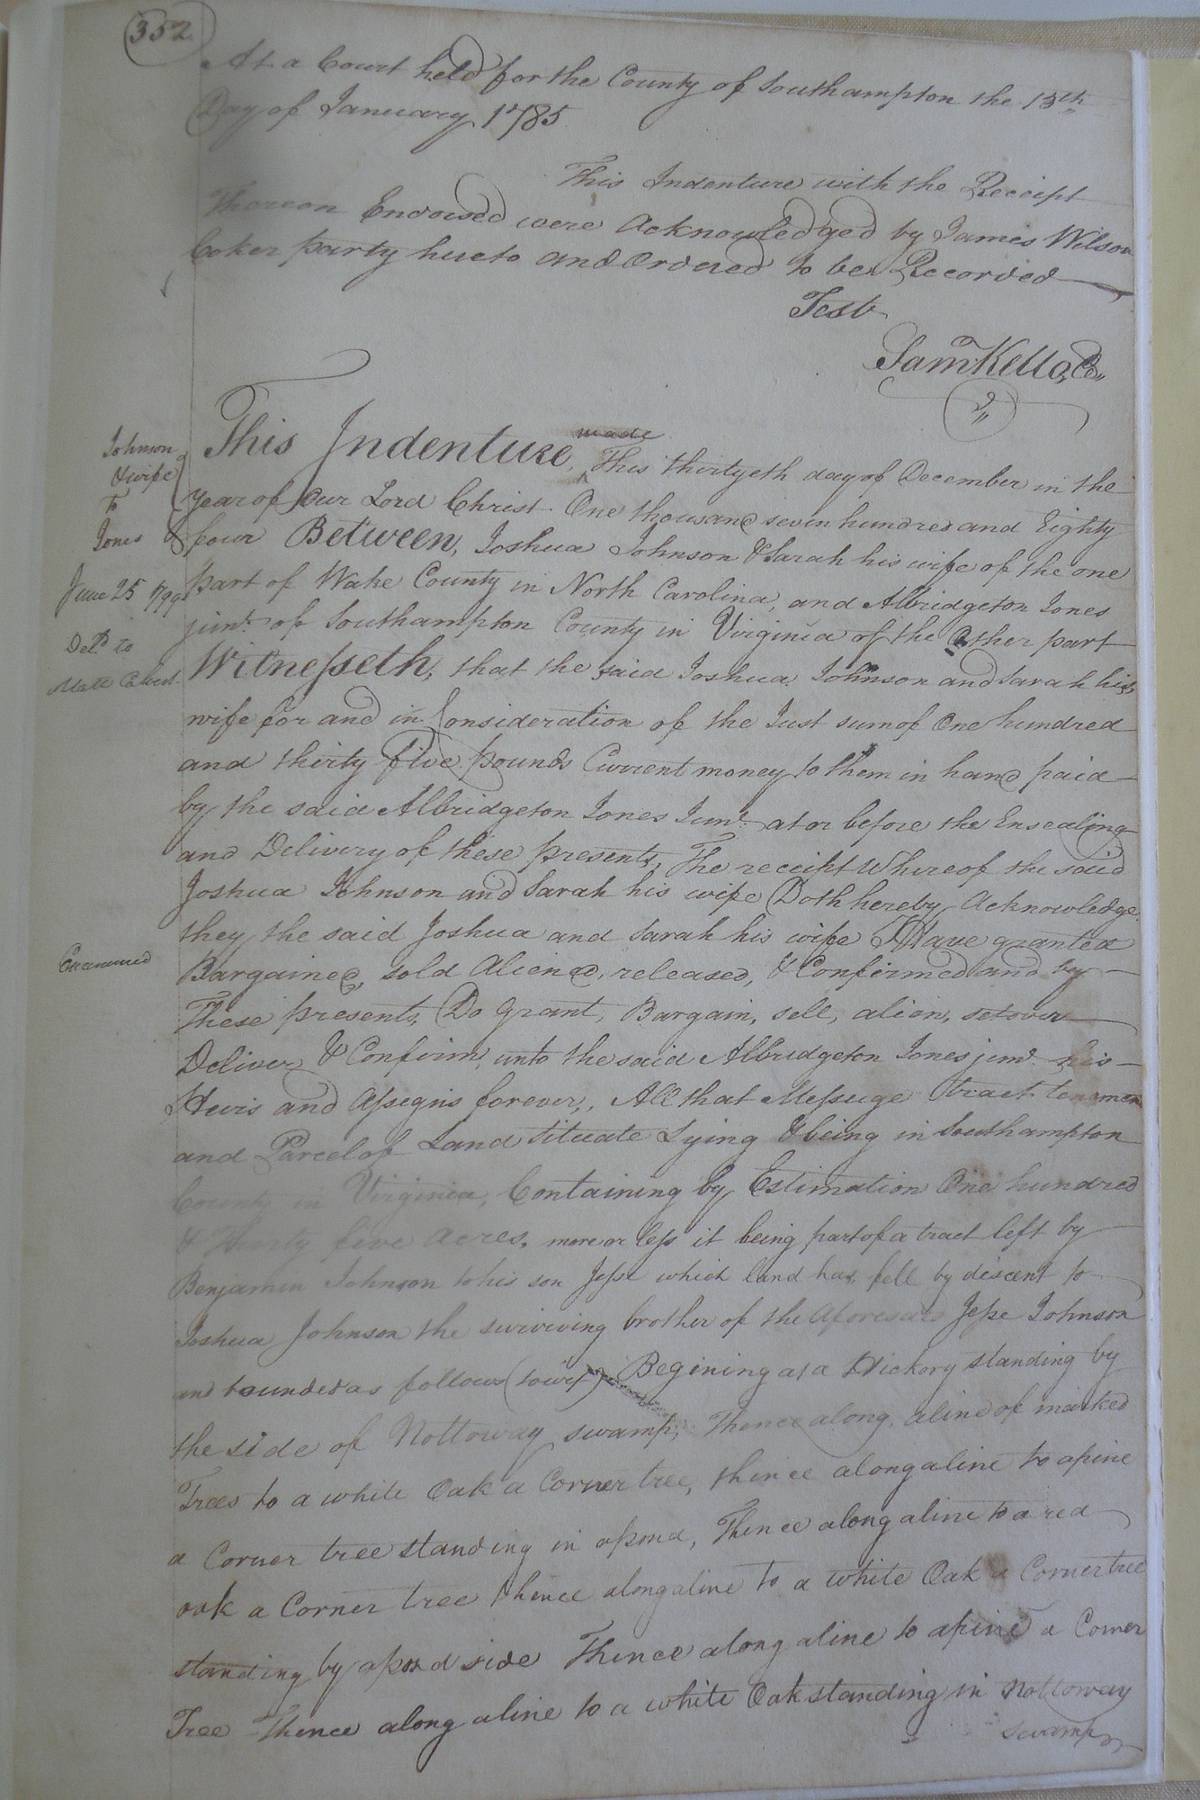 352
At a Court held for the County of Southampton the 13th
Day of January 1785
This Indenture with the Receipt
Thereon Endorsed were Acknowledged by James Wilson
Coker party hereto and Ordered to be Recorded
Test
Sam Kello, C
This Indenture, made This thirtyeth day of December in the
year of Our Lord Christ One thousand seven hundred and Eighty
four Between, Joshua Johnson & Sarah his wife of the one
part of Wake County in North Carolina, and Albridgeton Jones
junr. of Southampton County in Virginia of the Other part
Witnesseth, that the said Joshua Johnson and Sarah his
wife for and in Consideration of the Just sum of One hundred
and thirty five pounds Current money to them in hand paid
by the said Albridgeton Jones Junr. at or before the Ensealing
and Delivery of these presents, The receipt Whereof the said
Joshua Johnson and Sarah his wife Doth hereby Acknowledge
they the said Joshua and Sarah his wife Have granted
Bargained, sold Aliened, released, & Confirmed and by
These presents, Do Grant, Bargain, sell, alien, setover
Deliver & Confirm, unto the said Albridgeton Jones junr. his
Heirs and Assigns forever, All that Messuge tract tenemen
and Parcel of Land Situate Lying & being in Southampton
County in Virginia, Containing by Estimation One hundred
& Thirty five Acres, more or less it being part of a tract left by
Benjamin Johnson to his son Jesse which land has fell by discent to
Joshua Johnson the surviving brother of the Aforesaid Jesse Johnson
and bounded as follows (towit) Begining at a Hickory standing by
the side of Nottoway swamp, Thence along a line of marked
Trees to a white Oak a Corner tree, thence along a line to a pine
a Corner tree standing in a pond, Thence along a line to a red
oak a Corner tree thence along a line to a white Oak a Corner tree
standing by a pond side Thence along a line to a pine a Corner
Tree Thence along a line to a white Oak standing in Nottoway
swamp
Johnson
& wife
To
Jones
June 25 1799
Deld. to
Examined